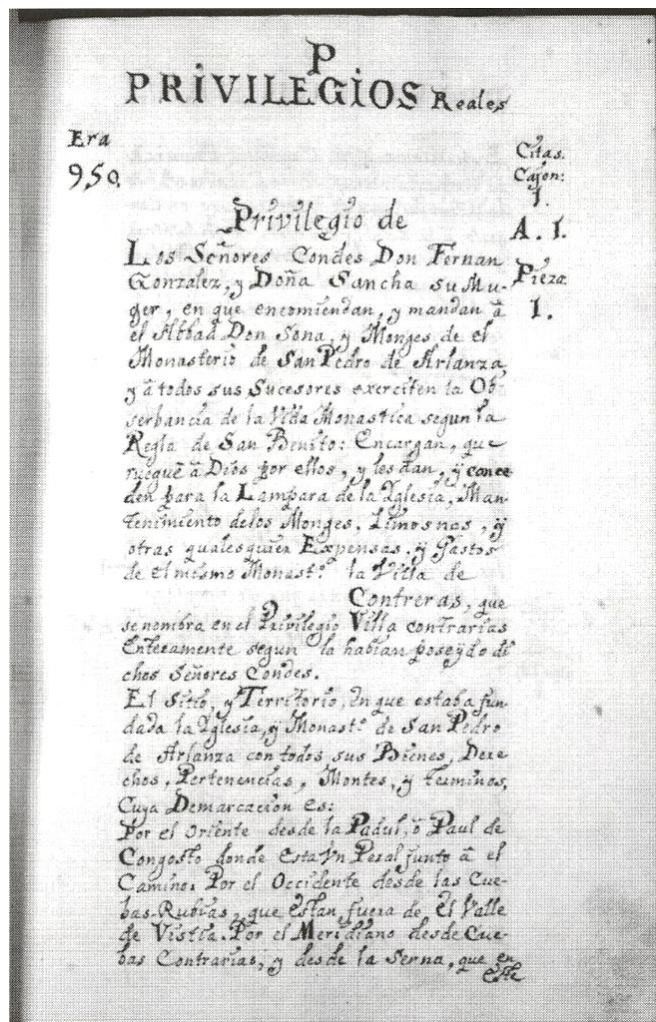 P
PRIVILEGIOS Reales
Era
950.
Citas.
Cajon:
1.
A. 1.
Pieza
1.
Privilegio de
Los Señores Condes Don Fernan
Gonzalez, y Doña Sancha su Mu-
ger, en que encomiendan, y mandan â
el Abbad Don Sona, y Monges de el
Monasterio de San Pedro de Arlanza,
y â todos sus Sucesores exerciten la Ob
serbancia de la Vida Monastica segun la
Regla de San Benito: Encargan, que
rueguē â Dios por ellos, y les dan, y conce
den para la Lampara de la Yglesia, Man-
tenimiento delos Monges, Limosnas, y
otras qualesquier Expensas, y Gastos
de el mismo Monast.º la Villa de
Contreras, que
se nombra en el Privilegio Villa contrarias
Enteramente segun la habian poseydo di
chos Señores Condes.
El Sitio, y Territorio, en que estaba fun
dada la Yglesia, y Monast.º de San Pedro
de Arlanza con todos sus Bienes, Dere
chos, Pertenencias, Montes, y terminos,
Cuya Demarcacion es:
Por el Oriente desde la Padul, ô Paul de
Congosto donde esta Vn Peral junto â el
Camino. Por el Occidente desde las Cue-
bas-Rubias, que estan fuera de el Valle
de Vistia. Por el Meridiano desde Cue-
bas Contrarias, y desde la Serna, que en
este